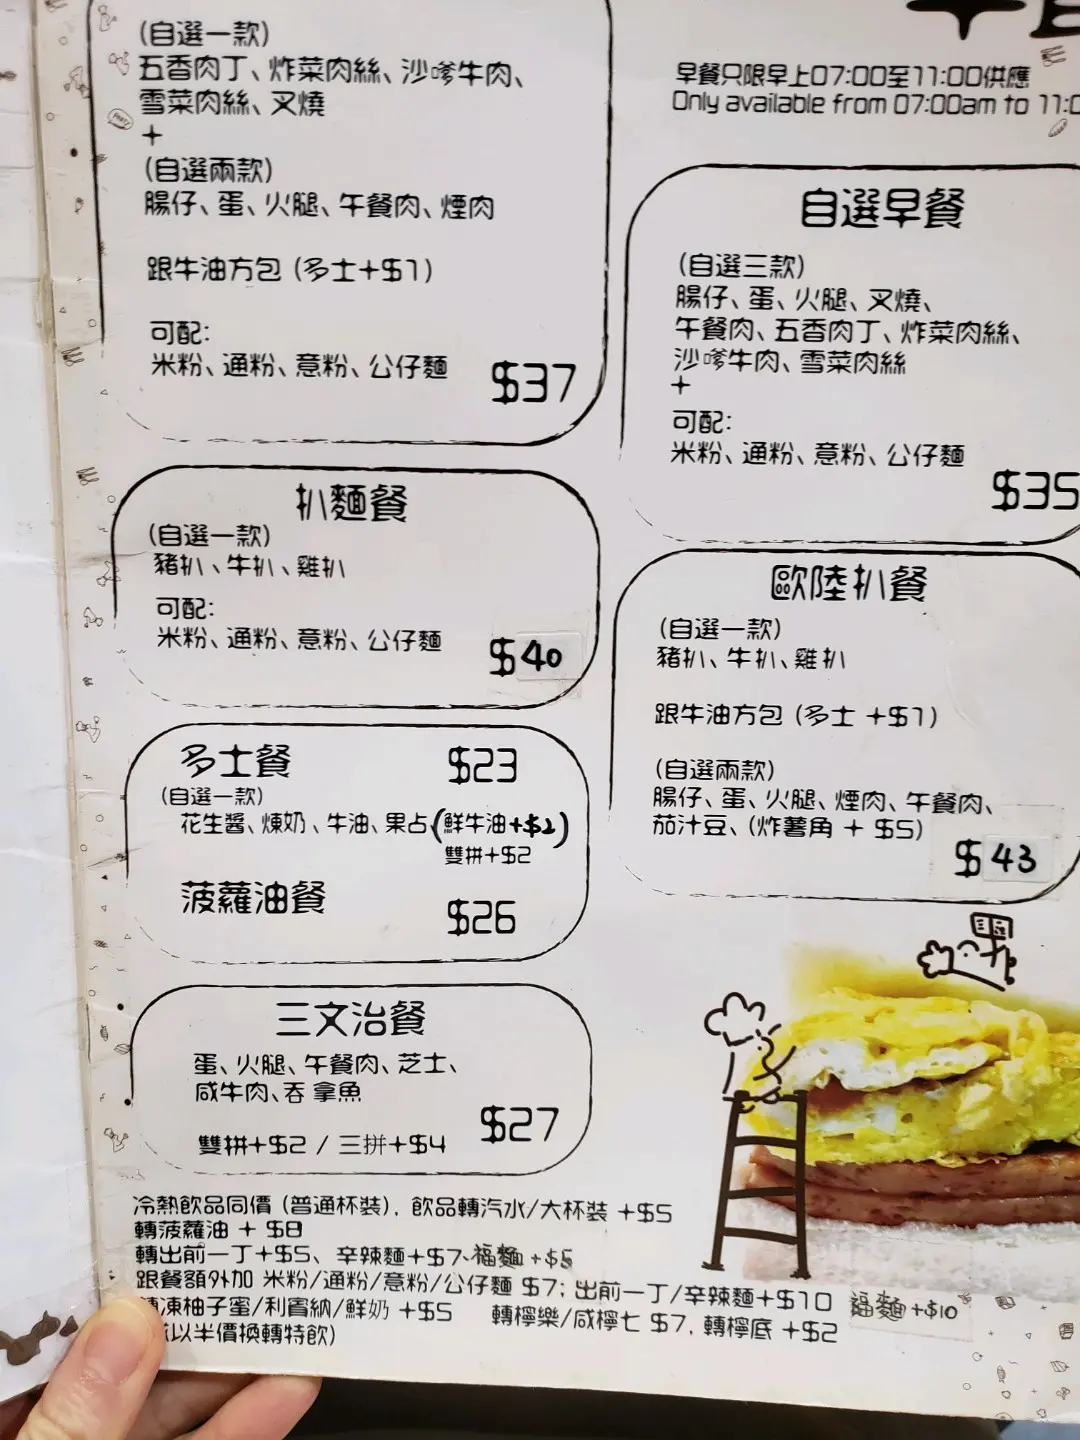 (自選一款)
五香肉丁、炸菜肉絲、沙嗲牛肉、
雪菜肉絲、叉燒
+
(自選兩款)
腸仔、蛋、火腿、午餐肉、煙肉
跟牛油方包 (多士+$1)
可配:
米粉、通粉、意粉、公仔麵
$37
扒麵餐
(自選一款)
豬扒、牛扒、雞扒
可配:
米粉、通粉、意粉、公仔麵
$40
多士餐 $23
(自選一款)
花生醬、煉奶、牛油、果占(鮮牛油+$2)
雙拼+$2
菠蘿油餐 $26
三文治餐
蛋、火腿、午餐肉、芝士、
咸牛肉、吞拿魚
雙拼+$2 / 三拼+$4 $27
早餐只限早上07:00至11:00供應
Only available from 07:00am to
自選早餐
(自選三款)
腸仔、蛋、火腿、叉燒、
午餐肉、五香肉丁、炸菜肉絲、
沙嗲牛肉、雪菜肉絲
+
可配:
米粉、通粉、意粉、公仔麵
$35
歐陸扒餐
(自選一款)
豬扒、牛扒、雞扒
跟牛油方包 (多士 +$1)
(自選兩款)
腸仔、蛋、火腿、煙肉、午餐肉、
茄汁豆、(炸薯角 + $5)
$43
冷熱飲品同價 (普通杯裝), 飲品轉汽水/大杯裝 +$5
轉菠蘿油 + $8
轉出前一丁+$5、辛辣麵+$7、福麵+$5
跟餐額外加 米粉/通粉/意粉/公仔麵 $7; 出前一丁/辛辣麵+$10 福麵+$10
凍柚子蜜/利賓納/鮮奶 +$5 轉檸樂/咸檸七 $7, 轉檸底 +$2
以半價換轉特飲)